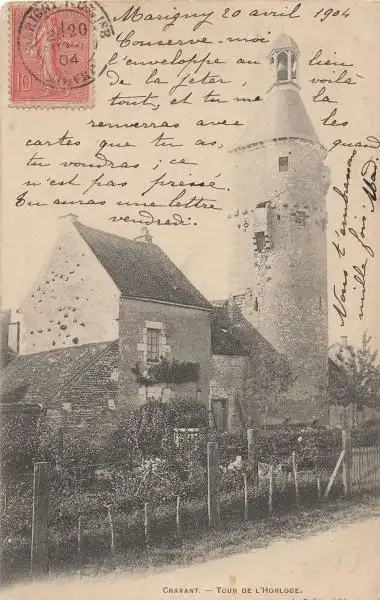 Marigny 20 avril 1904
Conserve-moi
l'enveloppe au lieu
de la jeter, voilà
tout, et tu me la
renverras avec les
cartes que tu as, quand
tu voudras; ça
n'est pas pressé.
Tu auras une lettre
vendredi.
Nous t'embrassons
mille fois
10
20
04
CRAVANT. - TOUR DE L'HORLOGE.